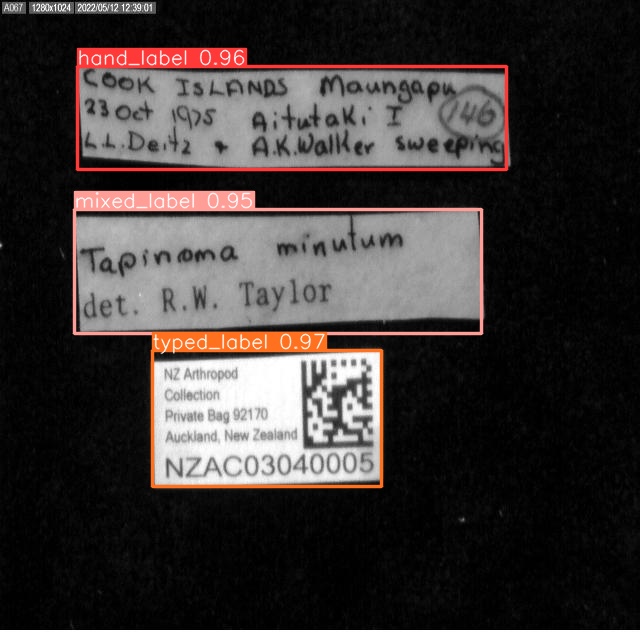 A067 1280x1024 2022/05/12 12:39:01
hand_label 0.96
COOK ISLANDS Maungapu
23 Oct 1975 Aitutaki I 146
L.L.Deitz & A.K.Walker sweeping
mixed_label 0.95
Tapinoma minutum
det. R.W. Taylor
typed_label 0.97
NZ Arthropod
Collection
Private Bag 92170
Auckland, New Zealand
NZAC03040005